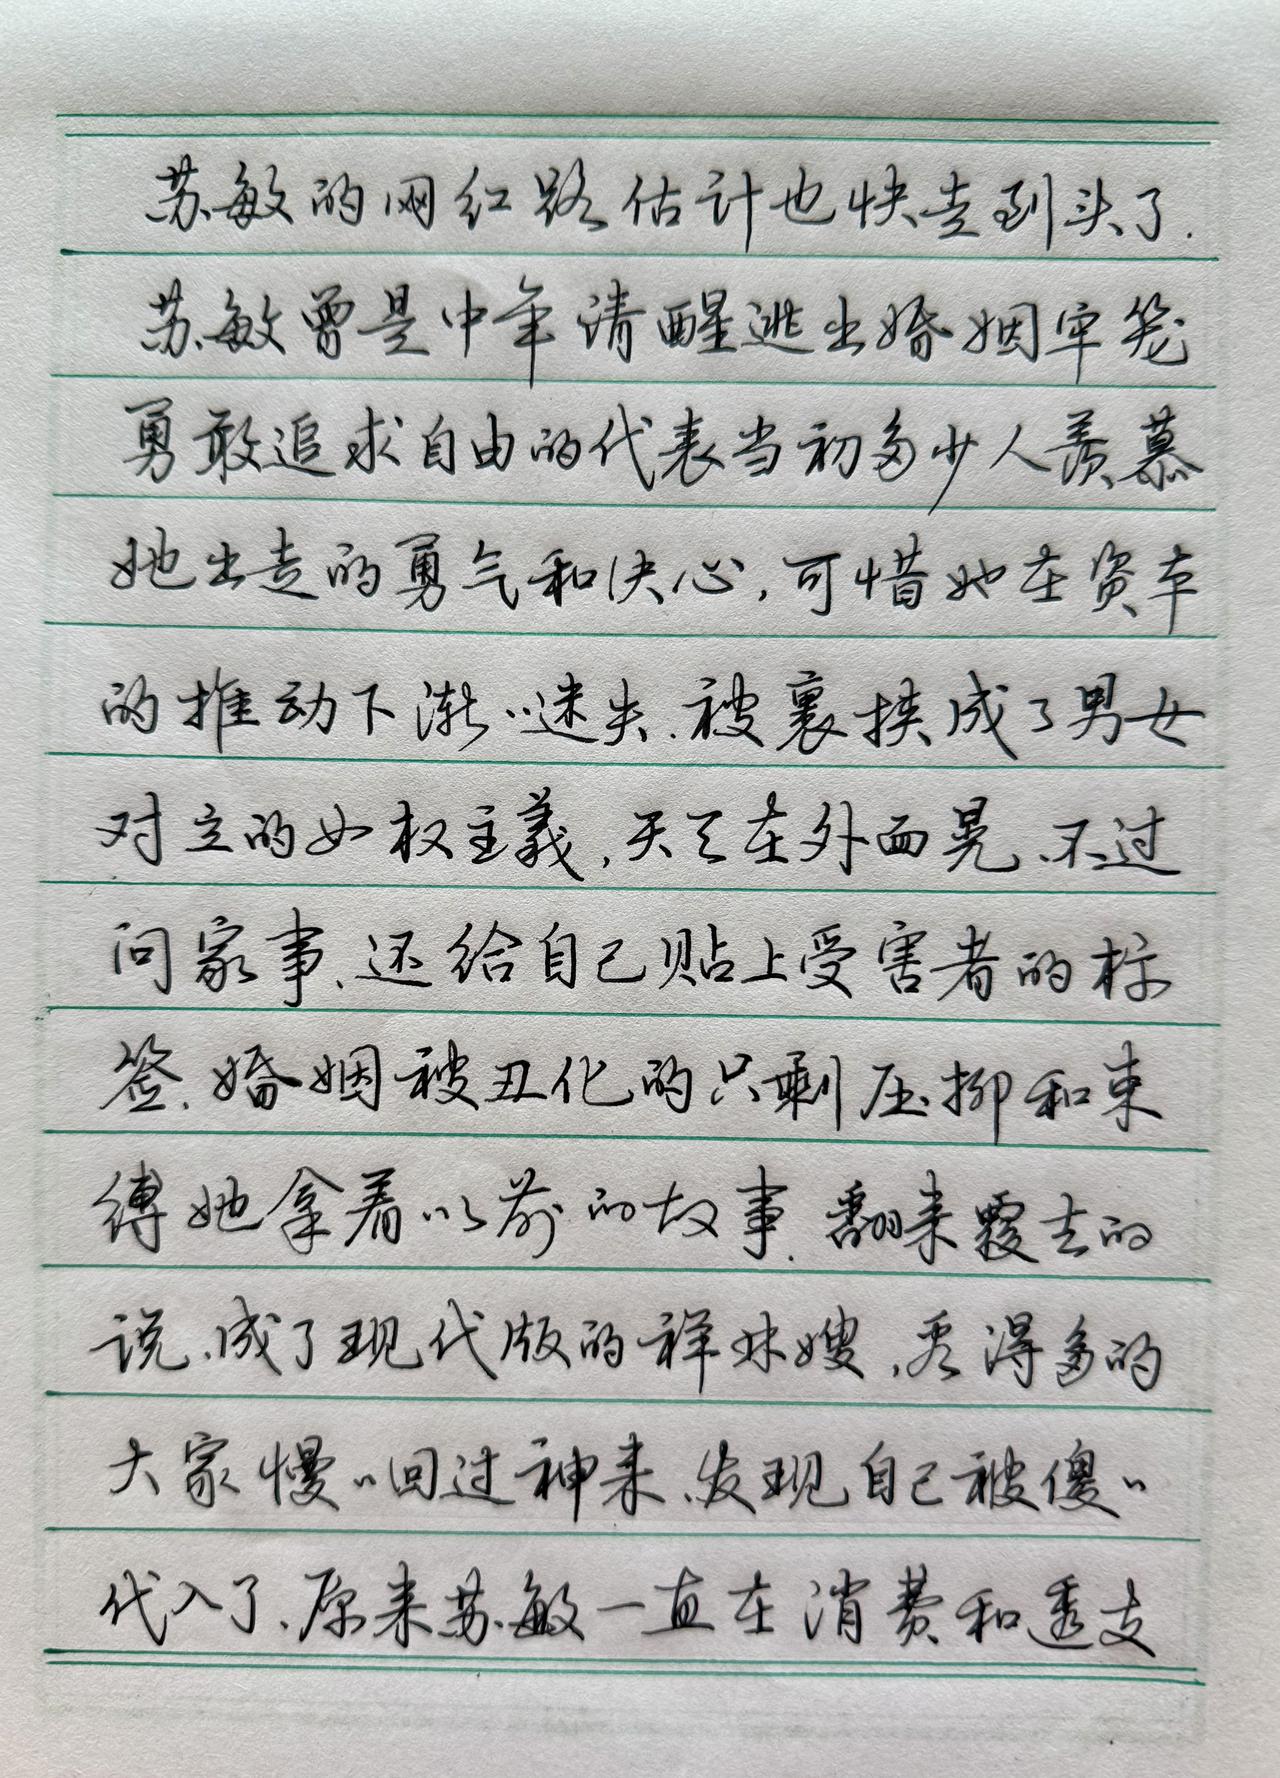 苏敏的网红路估计也快走到头了.
苏敏曾是中年清醒逃出婚姻牢笼
勇敢追求自由的代表当初多少人羡慕
她出走的勇气和决心,可惜她在资本
的推动下渐〻迷失、被裹挟成了男女
对立的女权主義,天天在外面晃、不过
问家事、还给自己贴上受害者的标
签、婚姻被丑化的只剩压抑和束
缚她拿着以前的故事、翻来覆去的
说、成了现代版的祥林嫂,看得多的
大家慢〻回过神来、发现自己被傻〻
代入了、原来苏敏一直在消费和透支